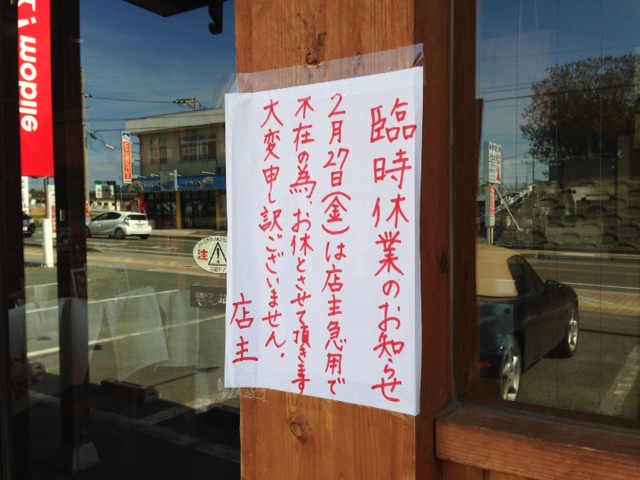 臨時休業のお知らせ
2月27日(金)は店主急用で
不在の為、お休とさせて頂きます
大変申し訳ございません。
店主
i mobile
注